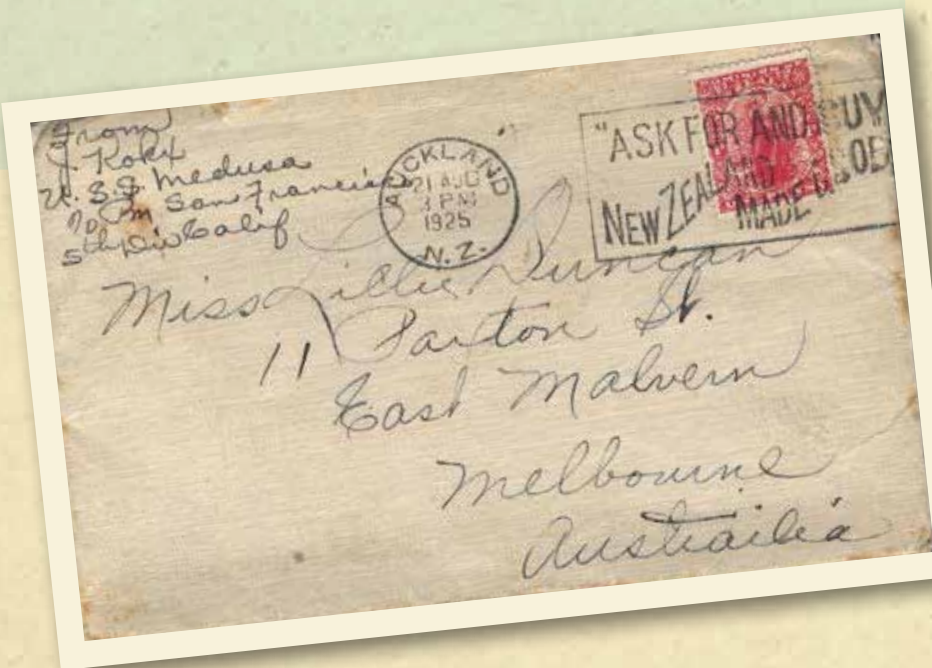 From
J.
U.S.S. Medusa
℅ P.M San Francisco
5th Div Calif
AUCKLAND
21 AUG
3 PM
1925
N.Z.
"ASK FOR AND BUY
NEW ZEALAND
MADE GOOD
Miss Lillie Duncan
11 Paxton St.
East Malvern
Melbourne
Austrailia